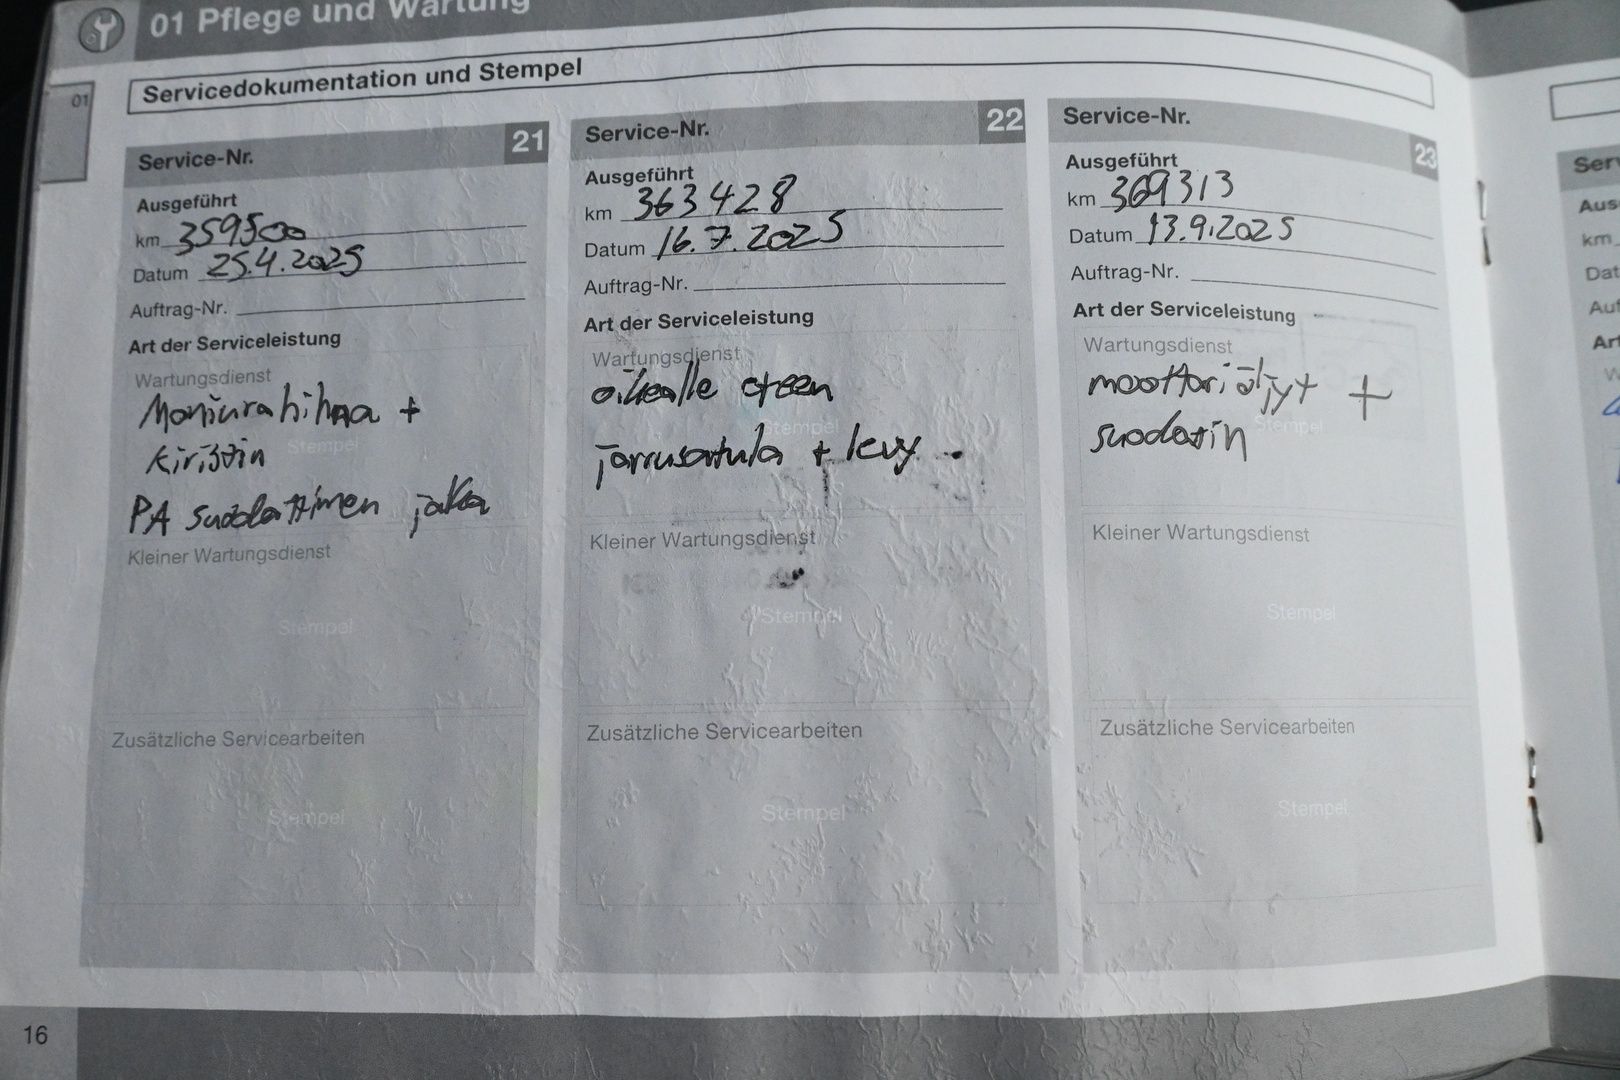 01 Pflege und Wartung
01
Servicedokumentation und Stempel
Service-Nr. 21
Ausgeführt
km 359500
Datum 25.4.2025
Auftrag-Nr.
Art der Serviceleistung
Wartungsdienst
Moniurahihna +
Stempel
kiristin
PA suodattimen jakka
Kleiner Wartungsdienst
Stempel
Zusätzliche Servicearbeiten
Stempel
Service-Nr. 22
Ausgeführt
km 363428
Datum 16.7.2025
Auftrag-Nr.
Art der Serviceleistung
Wartungsdienst
oikealle eteen
Stempel
jarrusatula + levy .
Kleiner Wartungsdienst
Stempel
Zusätzliche Servicearbeiten
Stempel
Service-Nr. 23
Ausgeführt
km 369313
Datum 13.9.2025
Auftrag-Nr.
Art der Serviceleistung
Wartungsdienst
moottoriöljyt +
suodatin
Stempel
Kleiner Wartungsdienst
Stempel
Zusätzliche Servicearbeiten
Stempel
16
Ser
Aus
km
Dat
Auf
Art